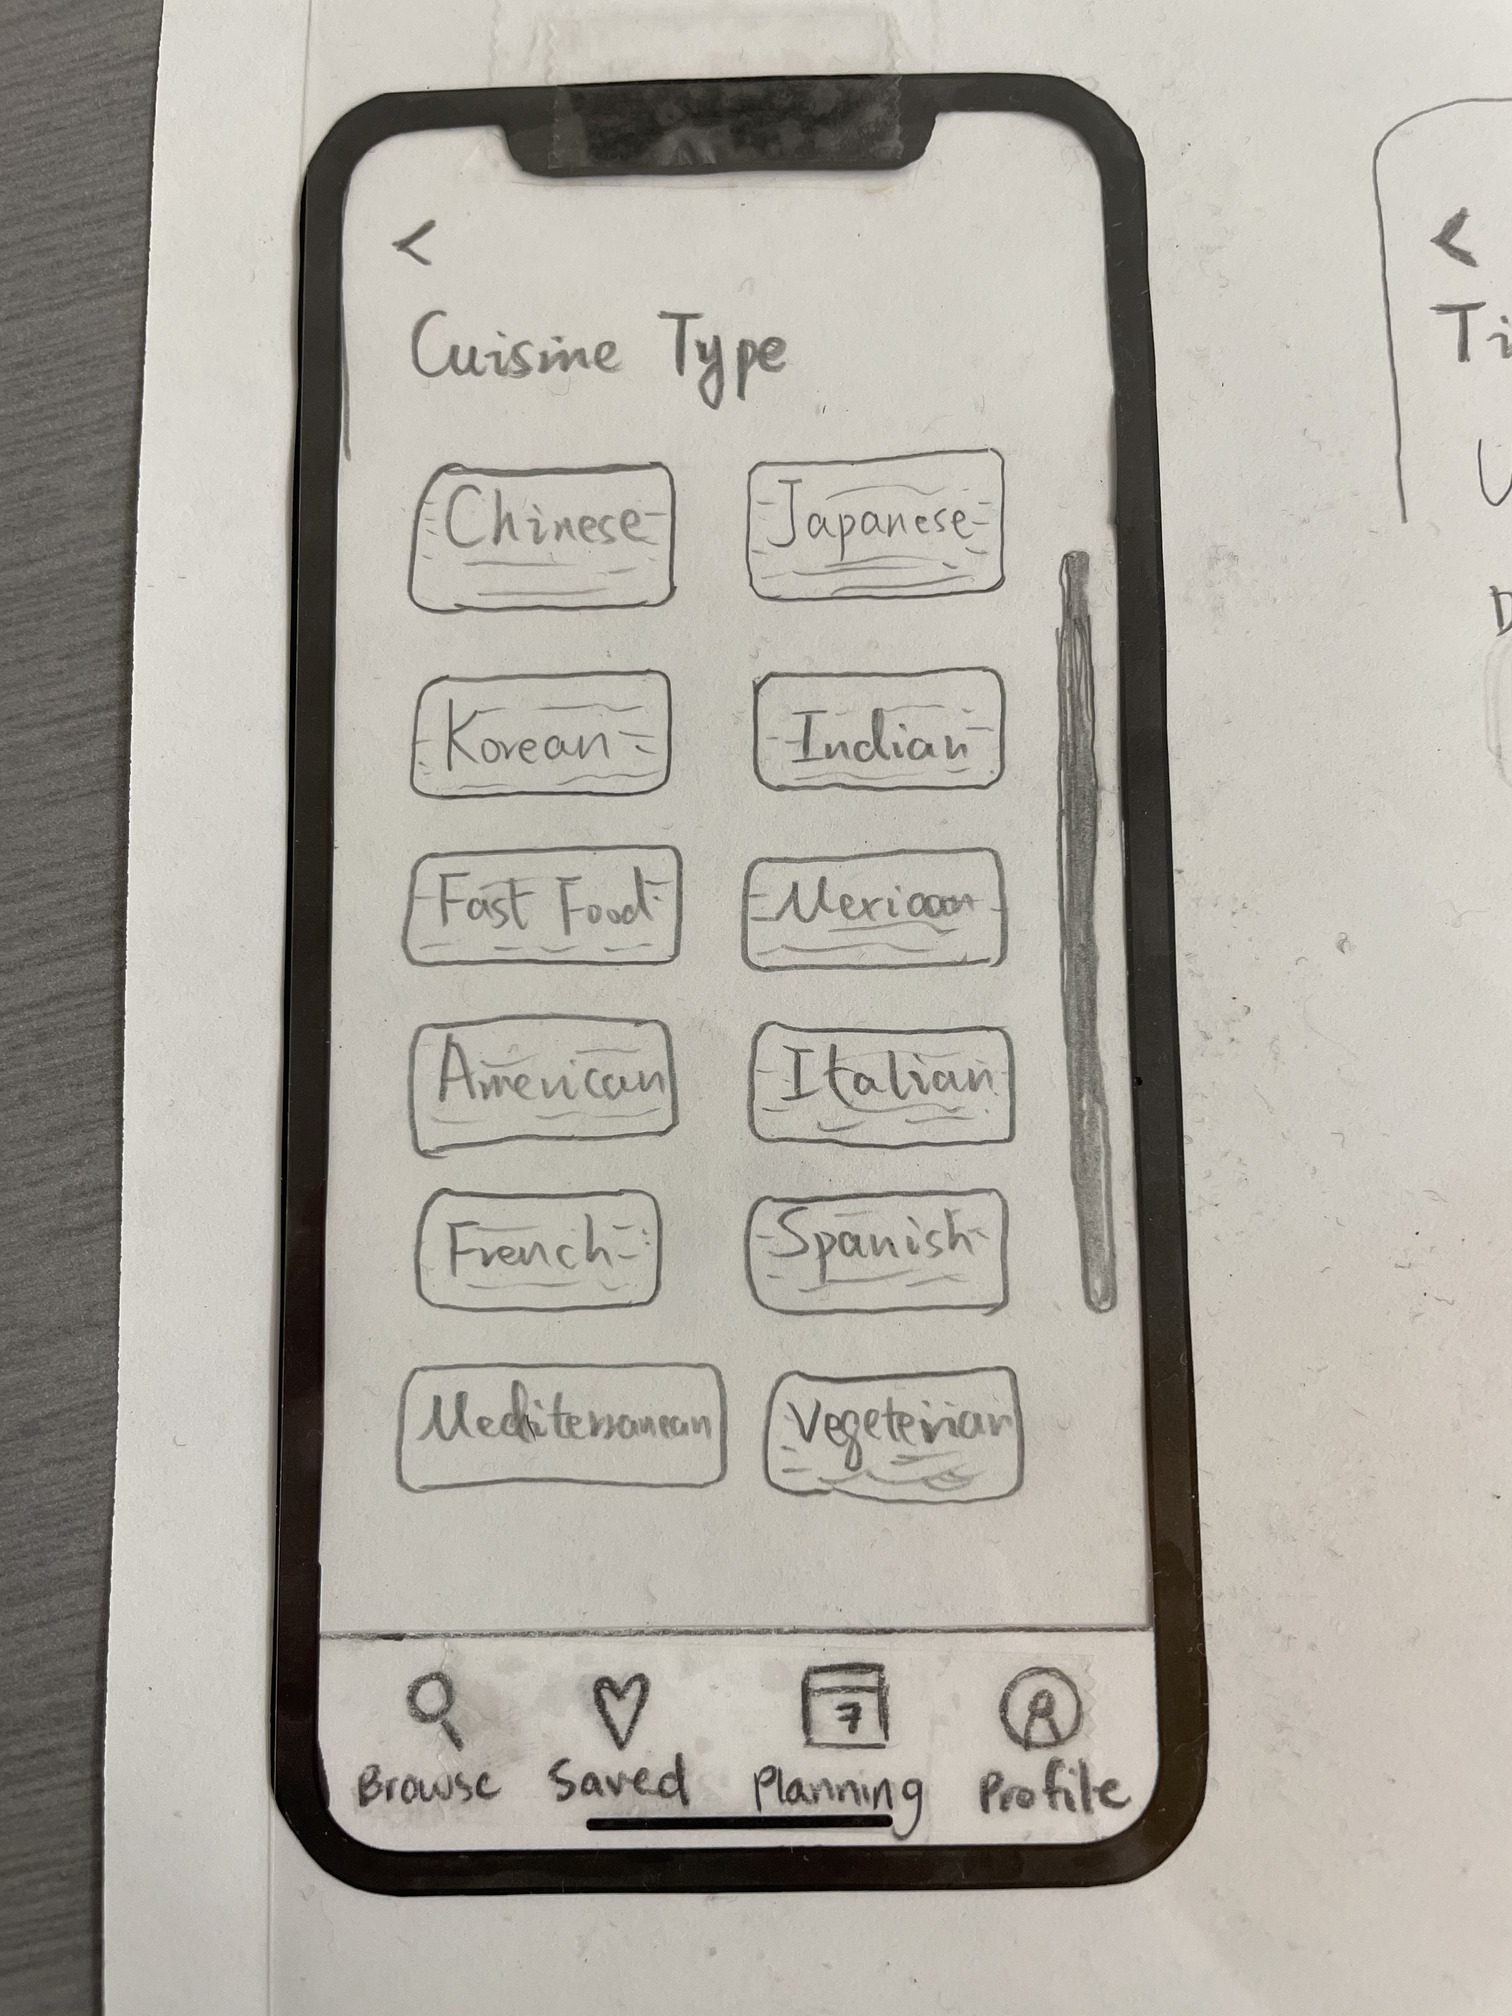 <
Cuisine Type
Chinese
Japanese
Korean
Indian
Fast Food
Mexican
American
Italian
French
Spanish
Mediterranean
Vegeterian
7
Browse
Saved
Planning
Profile
<
Ti